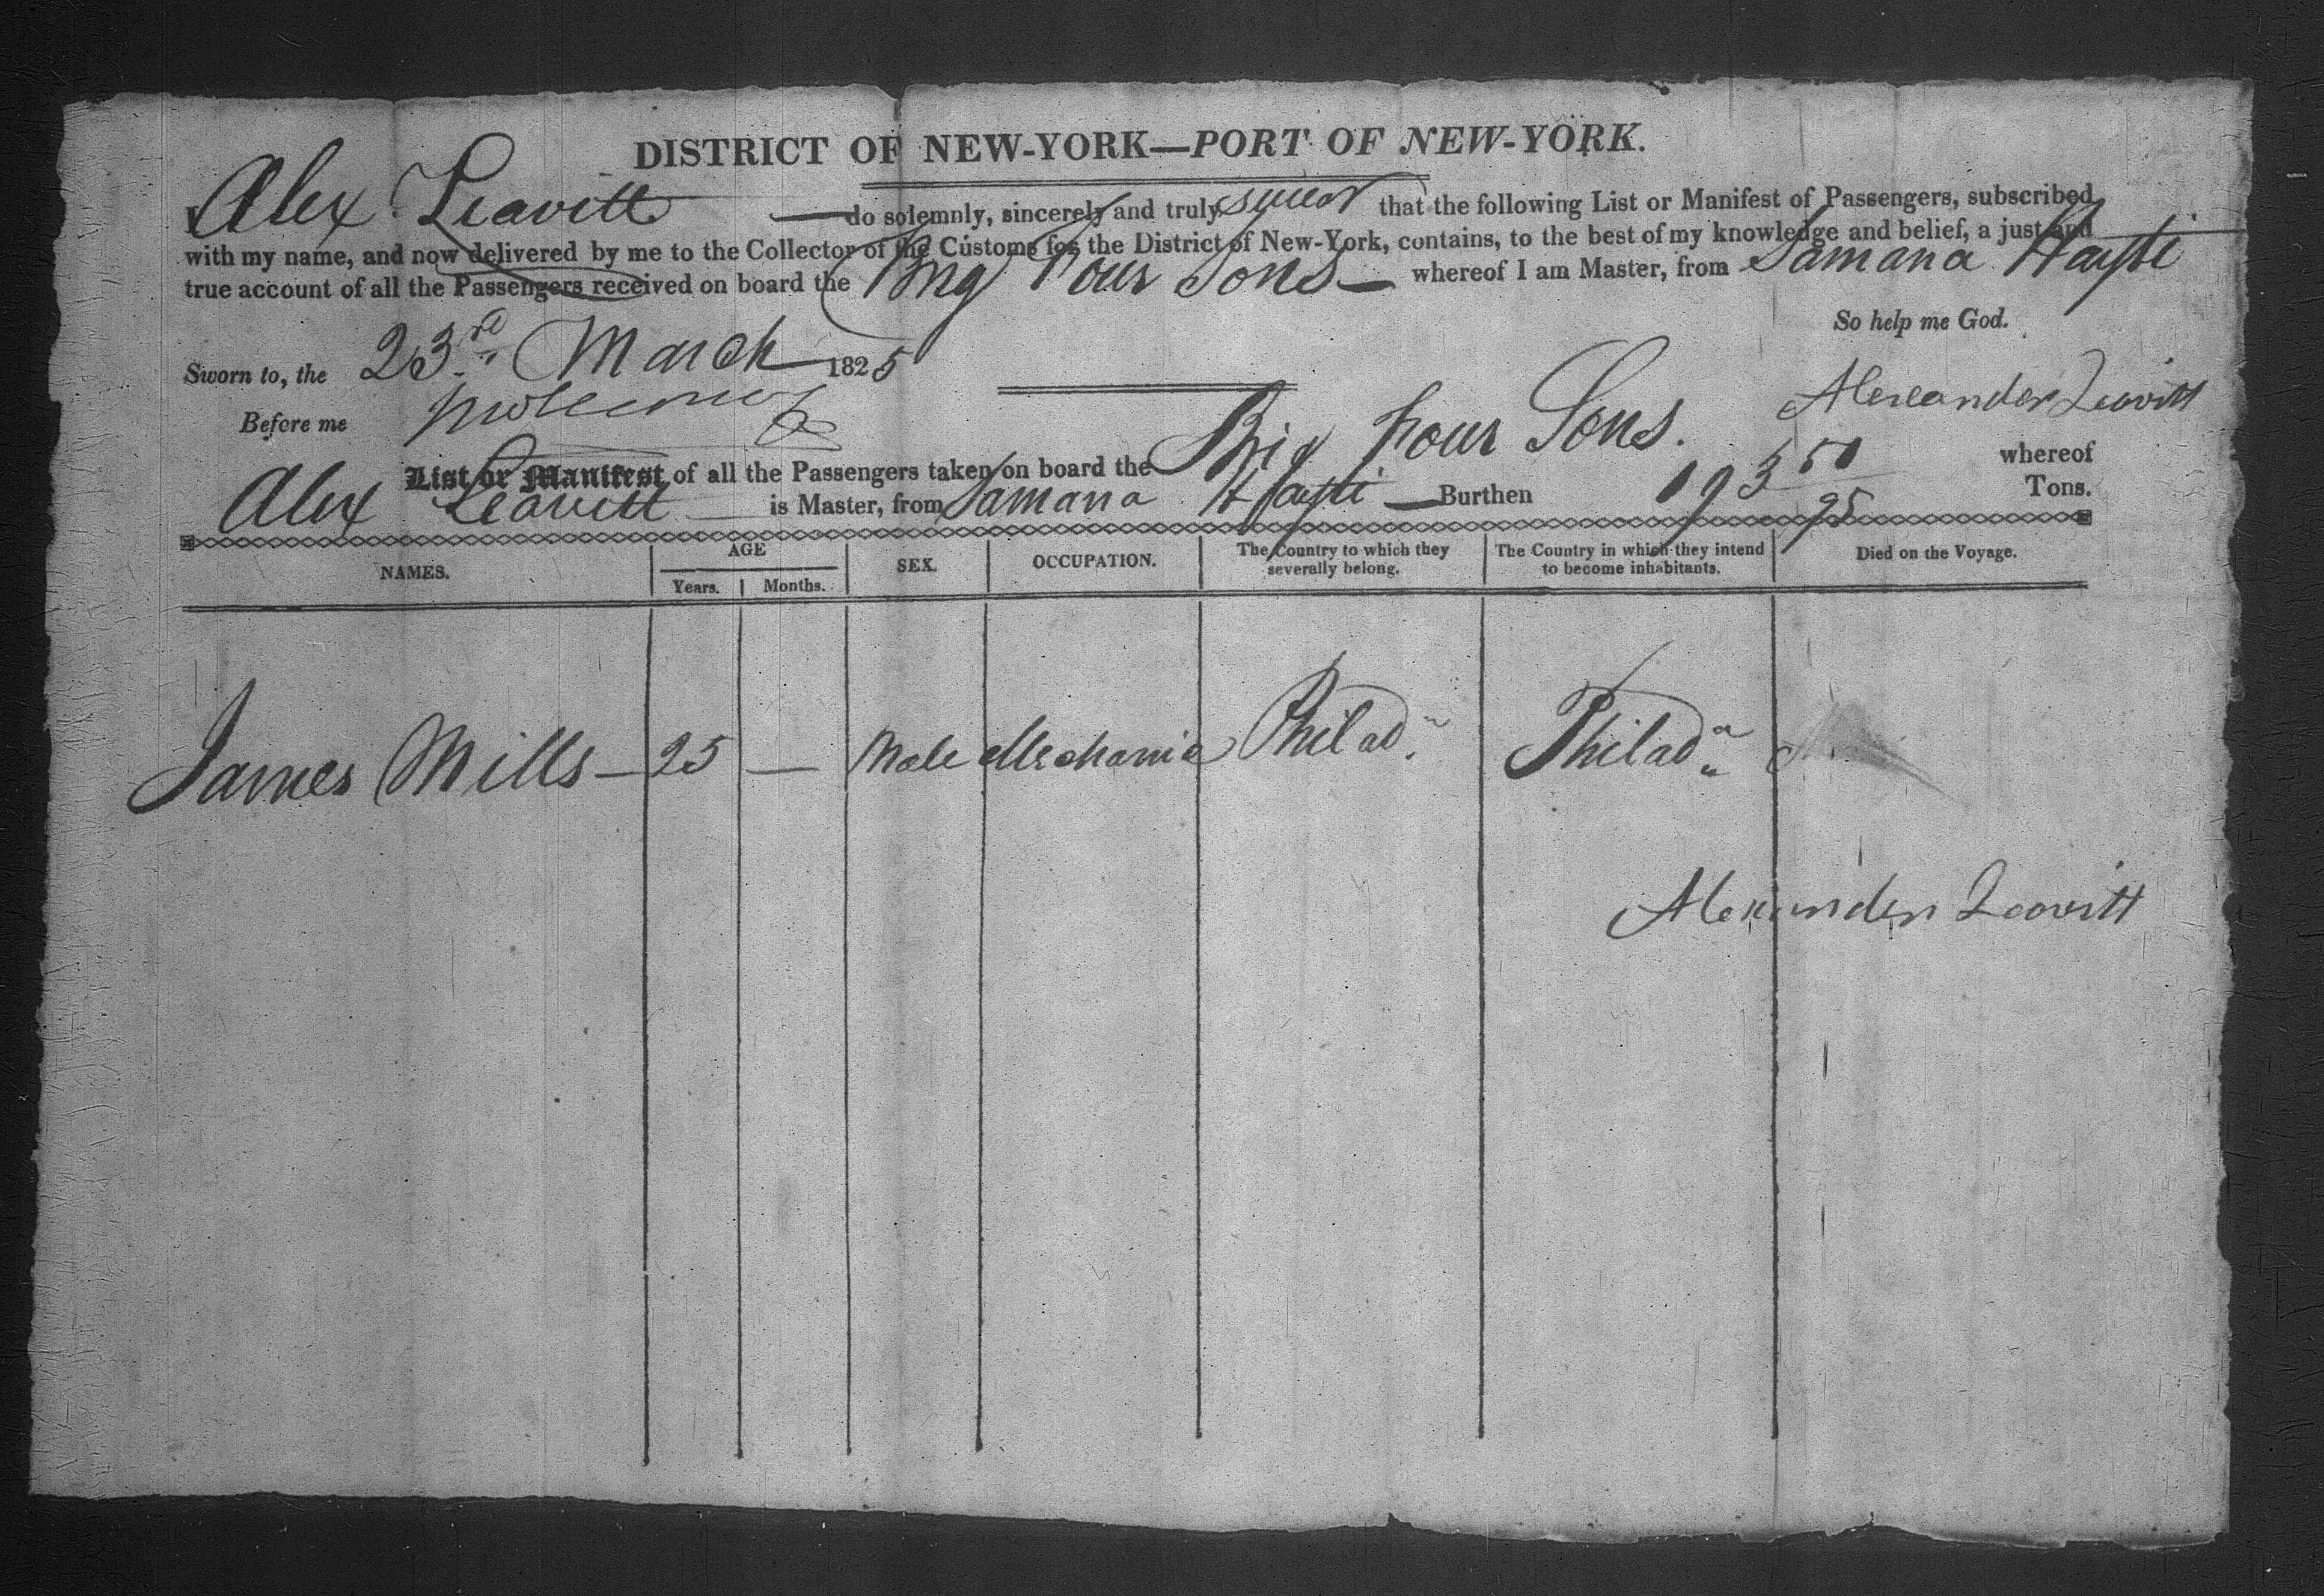 DISTRICT OF NEW-YORK—PORT OF NEW-YORK.
I Alex Leavitt do solemnly, sincerely and truly swear that the following List or Manifest of Passengers, subscribed
with my name, and now delivered by me to the Collector of the Customs for the District of New-York, contains, to the best of my knowledge and belief, a just and
true account of all the Passengers received on board the Brig Four Sons — whereof I am Master, from Samana Hayti
So help me God.
Sworn to, the 23rd March 1825
Alexander Leavitt
Before me
List or Manifest of all the Passengers taken on board the Brig Four Sons. whereof
Alex Leavitt is Master, from Samana Hayti — Burthen 193 50/95 Tons.
NAMES. AGE SEX. OCCUPATION. The Country to which they severally belong. The Country in which they intend to become inhabitants. Died on the Voyage.
Years. Months.
James Mills — 25 — Male Mechanic Philada. Philada
Alexander Leavitt